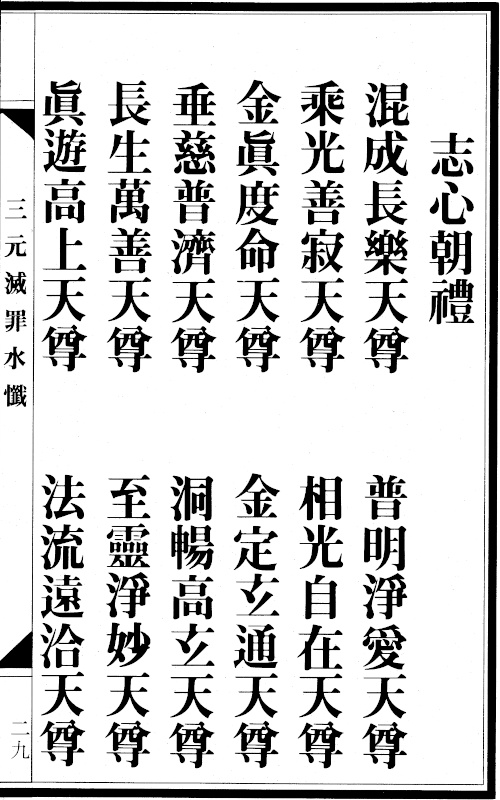 志心朝禮
混成長樂天尊　普明淨愛天尊
乘光善寂天尊　相光自在天尊
金眞度命天尊　金定玄通天尊
垂慈普濟天尊　洞暢高玄天尊
長生萬善天尊　至靈淨妙天尊
眞遊高上天尊　法流遠洽天尊
三元滅罪水懺
二九